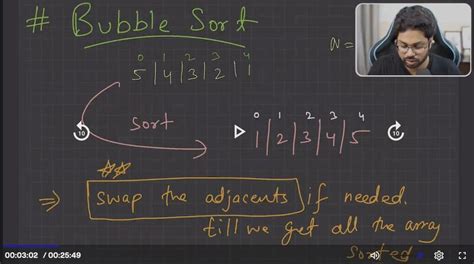 # Bubble Sort
N =
0 1 2 3 4
5 | 4 | 3 | 2 | 1
sort
0 1 2 3 4
1 | 2 | 3 | 4 | 5
10
10
⇒ swap the adjacents if needed.
till we get all the array
sorted
00:03:02 / 00:25:49